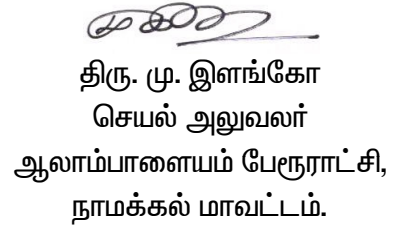 திரு. மு. இளங்கோ
செயல் அலுவலர்
ஆலாம்பாளையம் பேரூராட்சி,
நாமக்கல் மாவட்டம்.